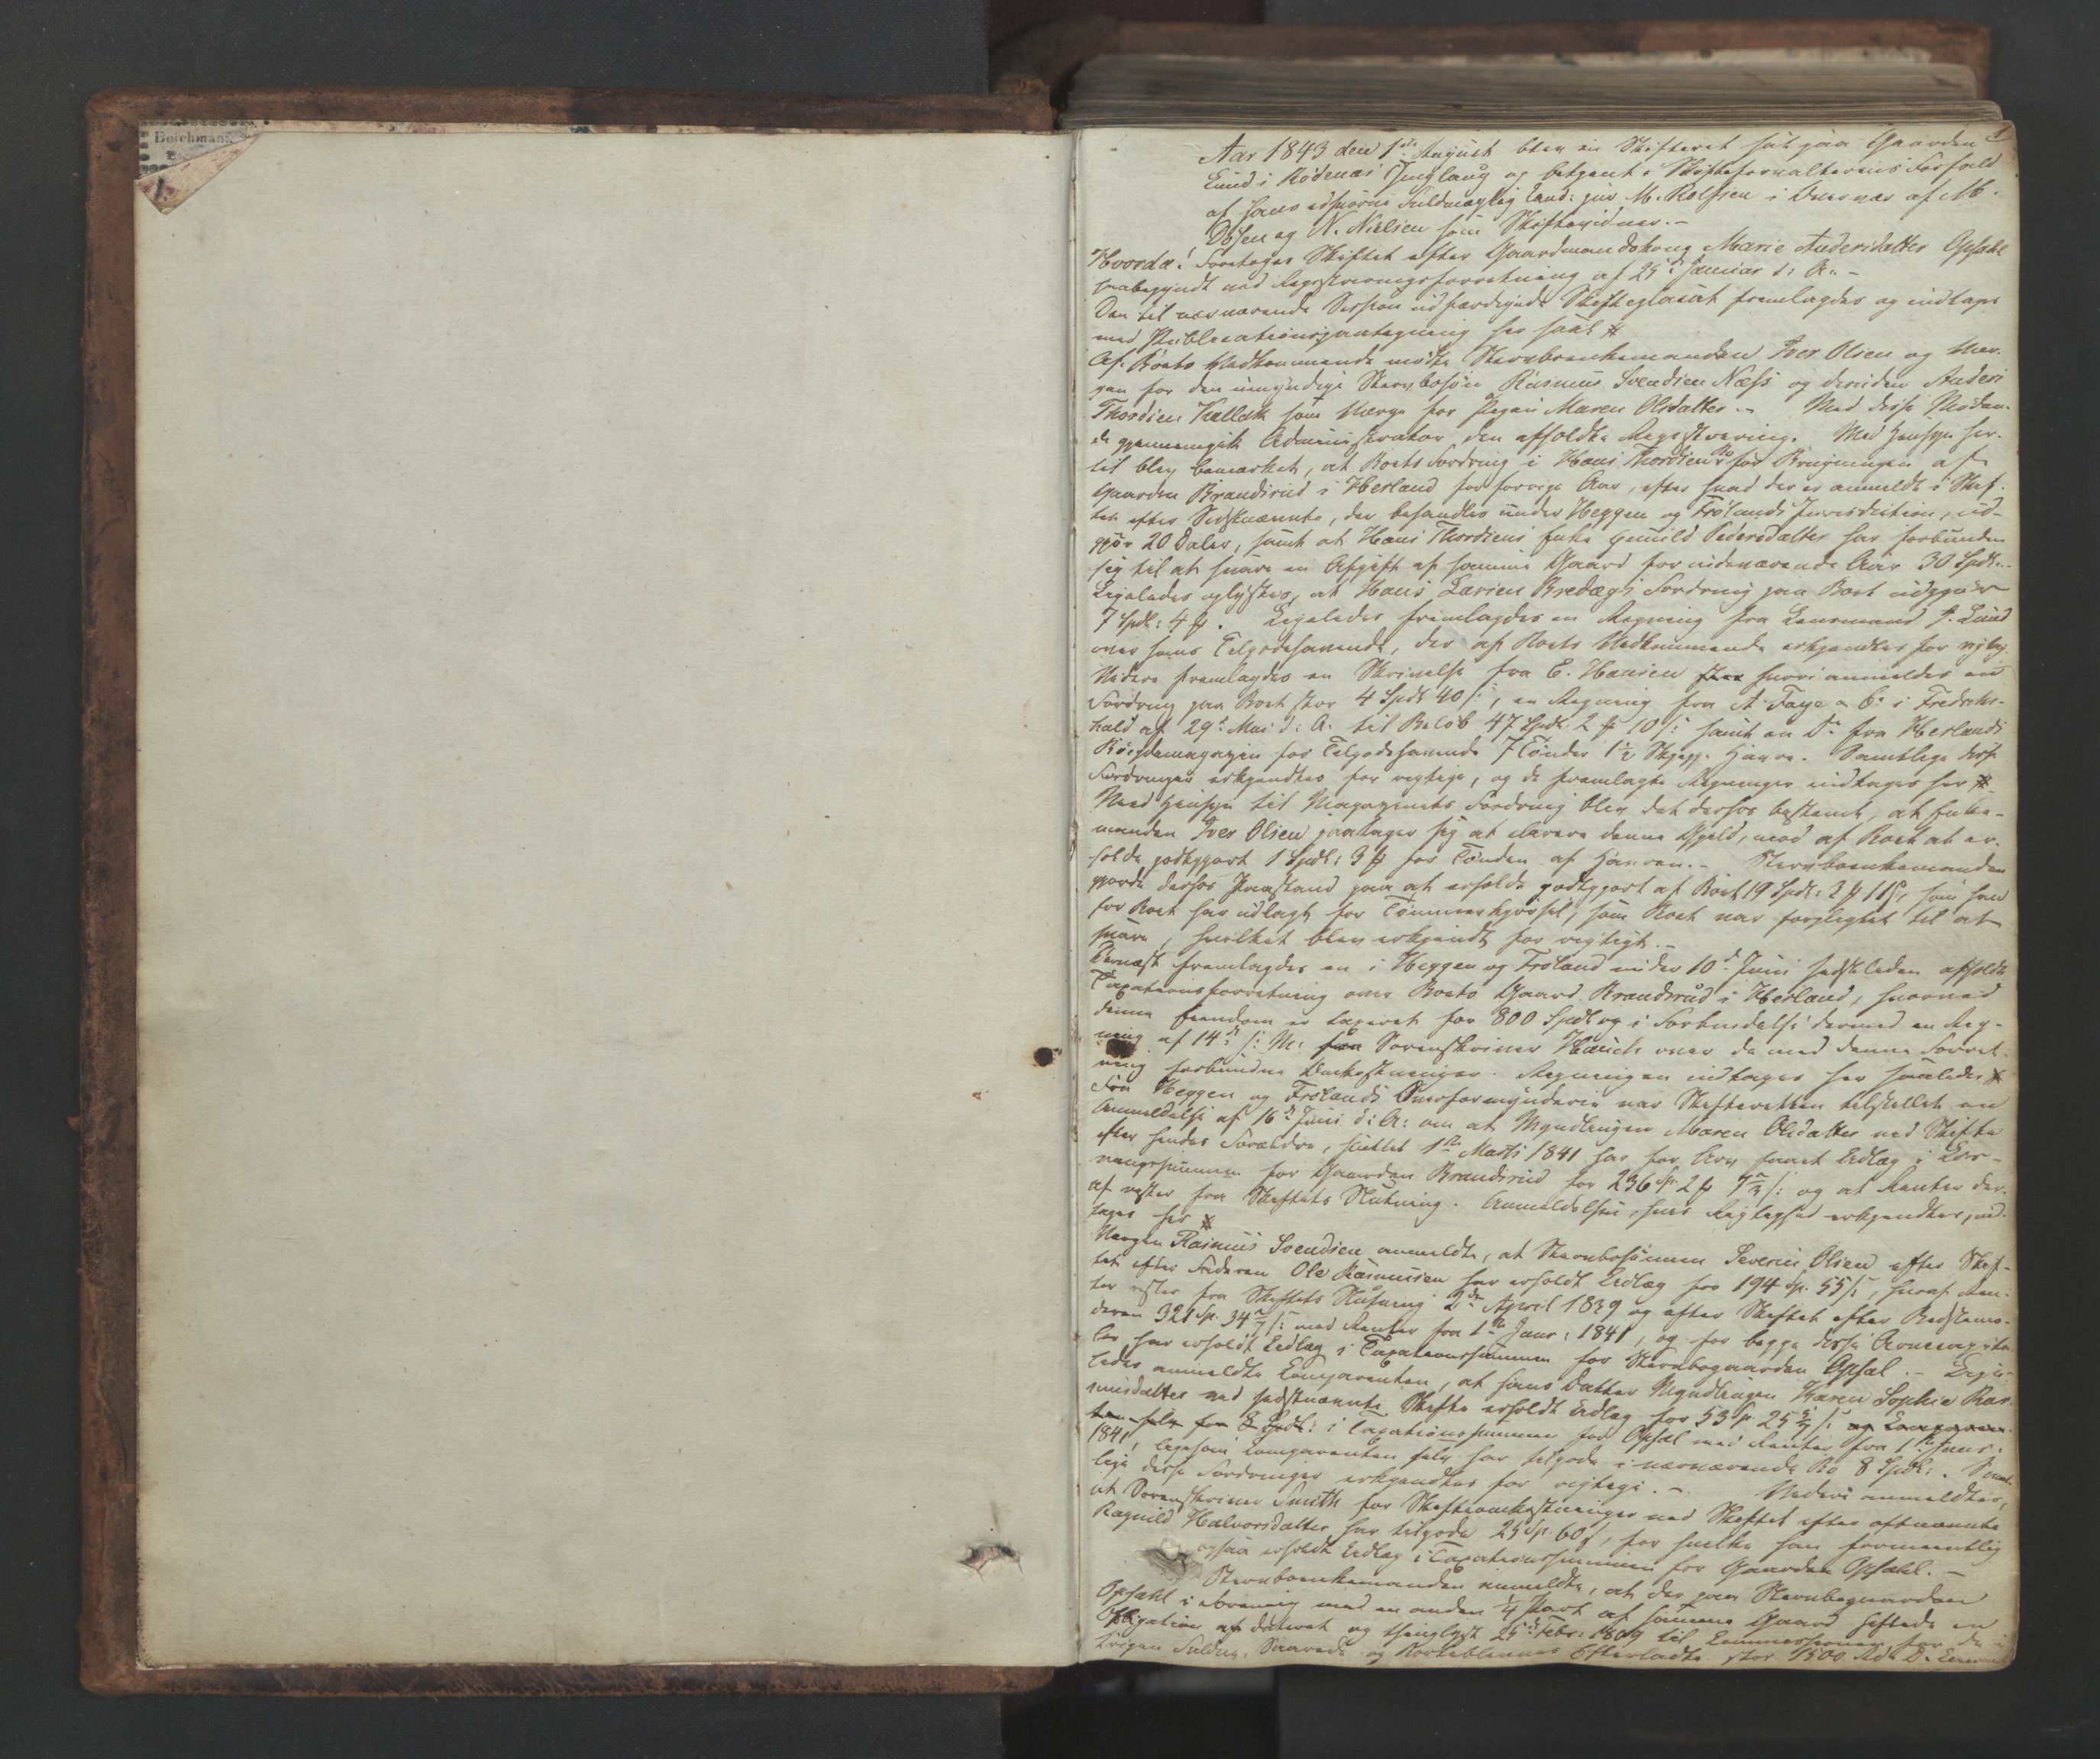 Deichmans
1.
1
Aar 1843 den 1ste August blev en Skifteret sat paa Gaarden
Lund i Rødenæs Thinglaug og betjent i Skifteforvalterens Forfald
af hans edsvorne Fuldmægtig Cand: jur. M. Rolfsen i Overvær af M.
Olsen og N. Nielsen som Skiftevidner. -
Hvorda! Foretoges Skiftet efter Gaardmandskone Marie Andersdatter Opsahl
paabegyndt ved Registreringsforretning af 25de Januar d: A: -
Den til nærværende Session udfærdigede Skifteplacat fremlagdes og indtages
med Publicationspaategning her saal #
Af Boets Vedkommende mødte Stervboenkemanden Iver Olsen og Vær-
gen for den umyndige Stervbosøn Rasmus Svendsen Næss og desuden Anders
Thordsen Kallak som Værge for Pigen Maren Olsdatter. - Med disse Mødan-
de gjennemgik Administrator den afholdte Registrering. Med Hensyn her-
til blev bemærket, at Boets Fordring i Hans Thordsens Bo for Brugningen af
Gaarden Brandsrud i Herland for forrige Aar, efter hvad der er anmeldt i Skif-
tet efter Sidstnævnte, der behandles under Heggen og Frølands Jurisdiction, ud-
gjør 20 Daler, samt at Hans Thordsens Enke Gunild Pedersdatter har forbunden
sig til at svare en Afgift af samme Gaard for indeværende Aar 30 Spdlr. -
Ligeledes oplystes, at Hans Larsen Bredægs Fordring paa Boet udgjør
7 Spdl: 4 ƒ. Ligeledes fremlagdes en Regning fra Lensmand P. Lund
over hans Tilgodehavende, der af Boets Vedkommende erkjendtes for rigtig.
Videre fremlagdes en Skrivelse fra E. Hansen hvori anmeldes en
Fordring paa Boet stor 4 Spdl 40 /:, en Regning fra A. Faye & Co: i Fredriks-
hald af 29de Mai d: A: til Beløb 47 Spdl: 2 ƒ 10 /: samt en Do fra Herlands
Bøigdemagazin for Tilgodehavende 7 Tønder 1½ Skjepp: Havre. Samtlige disse
Fordringer erkjendtes for rigtige, og de fremlagte Regninger indtages her #
Med Hensyn til Magazinets Fordring blev det derhos bestemt, at Enke-
manden Iver Olsen paatager sig at clarere denne Gjeld, mod af Boet at er-
holde godtgjort 1 Spdl: 3 ƒ for Tønden af Havren. - Stervboenkemanden
gjorde derhos Paastand paa at erholde godtgjort af Boet 19 Spdl: 3 ƒ 11 /:, som han
for Boet har udlagt for Tømmerkjørsel, som Boet var forpligtet til at
svare, hvilket blev erkjendt for rigtigt. -
Dernæst fremlagdes en i Heggen og Frøland under 10de Juni sidstleden afholdt
Taxationsforretning over Boets Gaard Brandsrud i Herland, hvorved
denne Eiendom er taxeret for 800 Spdl og i Forbindelse dermed en Reg-
ning af 14de s: M: fra Sorenskriver Hauch over de med denne Forret-
ning forbundne Omkostninger. Regningen indtages her saaledes #
Fra Heggen og Frølands Overformynderie var Skifteretten tilstillet en
Anmeldelse af 16de Juni d: A: om at Myndlingen Maren Olsdatter ved Skifte
efter hendes Forældre, sluttet 1ste Marts 1841 har for Arv faaet Udlæg i Løs-
ningssummen for Gaarden Brandsrud for 236 Sp. 2 ƒ /: og at Renter der-
af nyder fra Skiftets Slutning. Anmeldelsen, hvis Rigtighed erkjendtes, ind-
tages her #
Værgen Rasmus Svendsen anmeldte, at Stervbosønnen Severin Olsen efter Skif-
tet efter Faderen Ole Rasmussen har erholdt Udlæg for 194 Sp. 55 /:, hvoraf Ren-
ter nyder fra Skiftets Slutning 2de April 1839 og efter Skiftet efter Bedstemo-
deren 321 Sp. 34 /: med Renter fra 1ste Janr: 1841, og for begge disse Arvecapita-
ler har erholdt Udlæg i Taxationssummen for Stervbogaarden Opsal. - Lige-
ledes anmeldte Comparenten, at hans Datter Myndlingen Karen Sophie Ras-
musdatter ved sidstnævnte Skifte erholdt Udlæg for 53 Sp. 25 /: og Comparen-
ten selv for 8 Spdl: i Taxationssummen for Opsal med Renter fra 1ste Janr:
1841, ligesom Comparenten selv har tilgode i nærværende Bo 8 Spdl:. Samt-
lige disse Fordringer erkjendtes for rigtige. - Videre anmeldtes,
at Sorenskriver Smith for Skifteomkostninger ved Skiftet efter oftnævnte
Ragnild Halvorsdatter har tilgode 25 Sp. 60 /:, for hvilke han formeentlig
ogsaa erholdt Udlæg i Taxationssummen for Gaarden Opsahl. -
Stervboenkemanden anmeldte, at der paa Stervbogaarden
Opsahl i Forening med en anden ¼ Part af samme Gaard heftede en
Obligation af dateret og thinglyst 25de Febr: 1809 til Commissionen for de i
Krigen Saarede og Efterladte stor 1500 Rd. D.